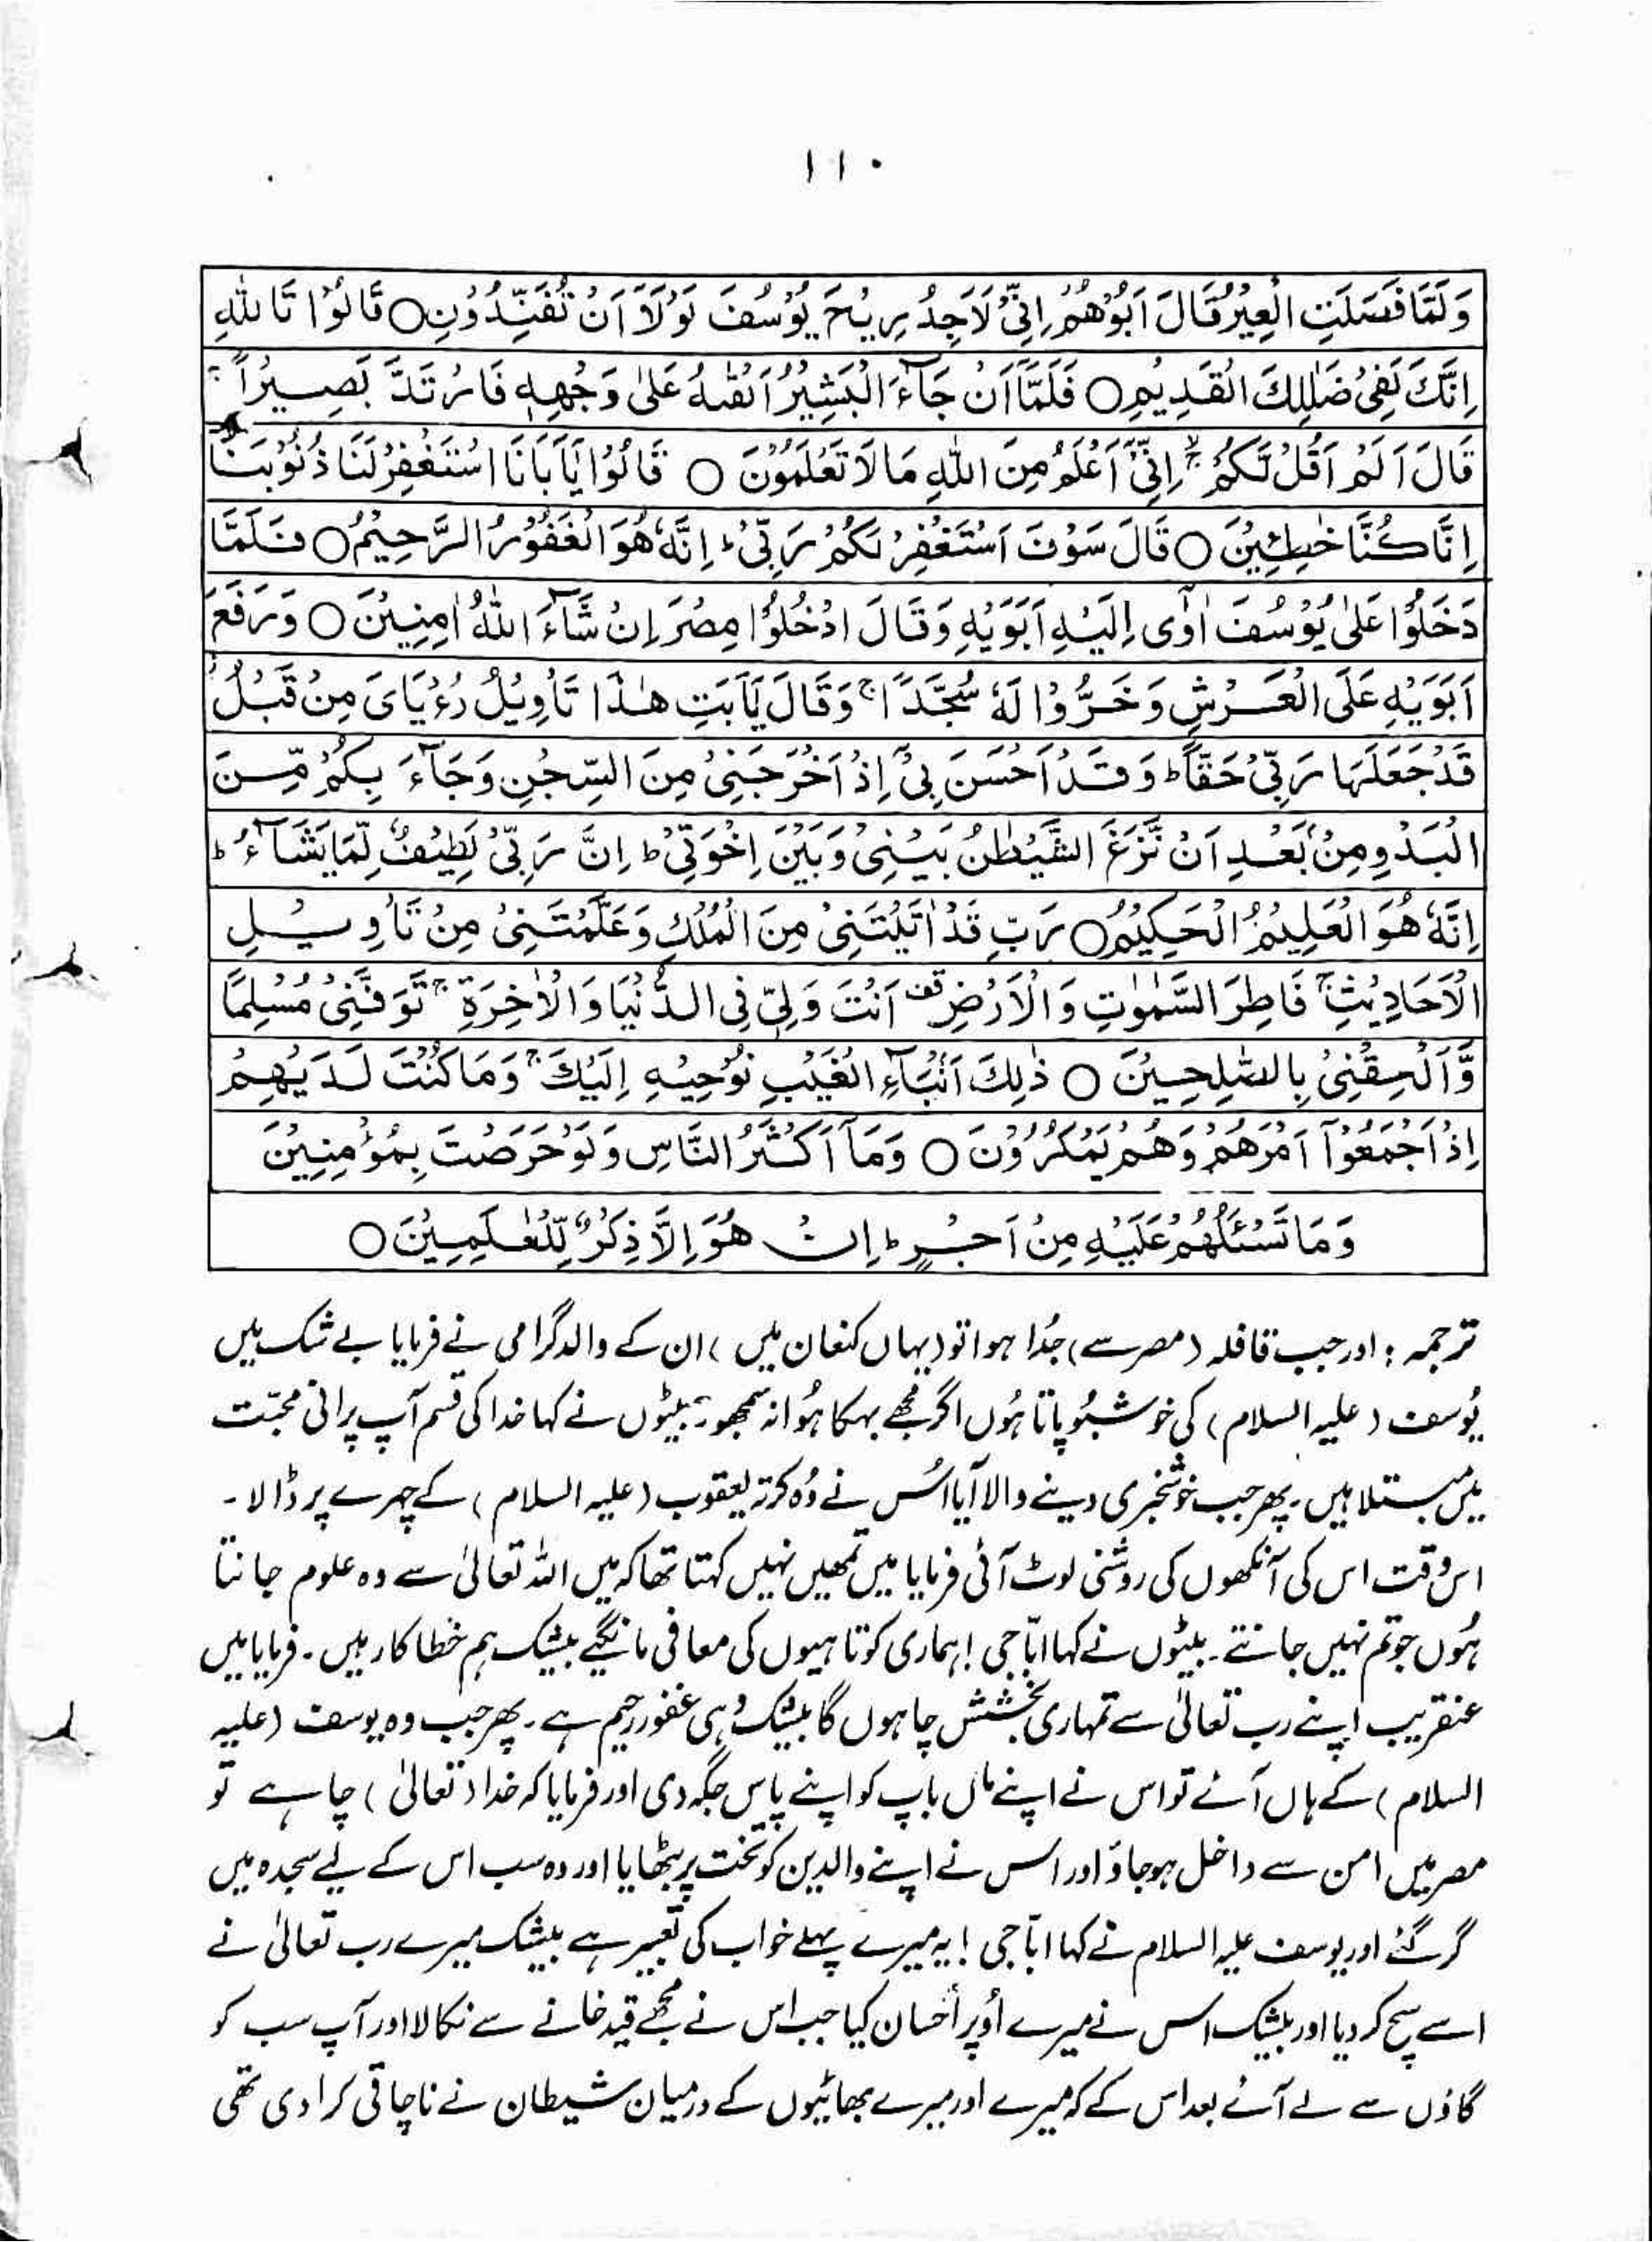 ۱۱۰
وَلَمَّا فَصَلَتِ الْعِيْرُ قَالَ اَبُوْهُمْ اِنِّيْ لَاَجِدُ رِيْحَ يُوْسُفَ لَوْلَآ اَنْ تُفَنِّدُوْنِ○ قَالُوْا تَاللّٰهِ
اِنَّكَ لَفِيْ ضَلٰلِكَ الْقَدِيْمِ○ فَلَمَّآ اَنْ جَآءَ الْبَشِيْرُ اَلْقٰىهُ عَلٰى وَجْهِهٖ فَارْتَدَّ بَصِيْرًا ۚ
قَالَ اَلَمْ اَقُلْ لَّكُمْ ۚۙ اِنِّيْٓ اَعْلَمُ مِنَ اللّٰهِ مَا لَا تَعْلَمُوْنَ ○ قَالُوْا يٰٓاَبَانَا اسْتَغْفِرْ لَنَا ذُنُوْبَنَآ
اِنَّا كُنَّا خٰطِـِٕيْنَ ○ قَالَ سَوْفَ اَسْتَغْفِرُ لَكُمْ رَبِّيْ ؕ اِنَّهٗ هُوَ الْغَفُوْرُ الرَّحِيْمُ○ فَلَمَّا
دَخَلُوْا عَلٰى يُوْسُفَ اٰوٰٓى اِلَيْهِ اَبَوَيْهِ وَقَالَ ادْخُلُوْا مِصْرَ اِنْ شَآءَ اللّٰهُ اٰمِنِيْنَ ○ وَرَفَعَ
اَبَوَيْهِ عَلَى الْعَرْشِ وَخَرُّوْا لَهٗ سُجَّدًا ۚ وَقَالَ يٰٓاَبَتِ هٰذَا تَاْوِيْلُ رُءْيَايَ مِنْ قَبْلُ ۫
قَدْ جَعَلَهَا رَبِّيْ حَقًّا ؕ وَقَدْ اَحْسَنَ بِيْٓ اِذْ اَخْرَجَنِيْ مِنَ السِّجْنِ وَجَآءَ بِكُمْ مِّنَ
الْبَدْوِ مِنْۢ بَعْدِ اَنْ نَّزَغَ الشَّيْطٰنُ بَيْنِيْ وَبَيْنَ اِخْوَتِيْ ؕ اِنَّ رَبِّيْ لَطِيْفٌ لِّمَا يَشَآءُ ؕ
اِنَّهٗ هُوَ الْعَلِيْمُ الْحَكِيْمُ○ رَبِّ قَدْ اٰتَيْتَنِيْ مِنَ الْمُلْكِ وَعَلَّمْتَنِيْ مِنْ تَاْوِيْلِ
الْاَحَادِيْثِ ۚ فَاطِرَ السَّمٰوٰتِ وَالْاَرْضِ قف اَنْتَ وَلِيّٖ فِي الدُّنْيَا وَالْاٰخِرَةِ ۚ تَوَفَّنِيْ مُسْلِمًا
وَّاَلْحِقْنِيْ بِالصّٰلِحِيْنَ ○ ذٰلِكَ اَنْۢبَآءِ الْغَيْبِ نُوْحِيْهِ اِلَيْكَ ۚ وَمَا كُنْتَ لَدَيْهِمْ
اِذْ اَجْمَعُوْٓا اَمْرَهُمْ وَهُمْ يَمْكُرُوْنَ ○ وَمَآ اَكْثَرُ النَّاسِ وَلَوْ حَرَصْتَ بِمُؤْمِنِيْنَ
وَمَا تَسْـَٔلُهُمْ عَلَيْهِ مِنْ اَجْرٍ ؕ اِنْ هُوَ اِلَّا ذِكْرٌ لِّلْعٰلَمِيْنَ ○
ترجمہ : اور جب قافلہ (مصر سے) جُدا ہوا تو (یہاں کنعان میں) ان کے والد گرامی نے فرمایا بے شک میں
یُوسف (علیہ السلام) کی خوشبُو پاتا ہُوں اگر مجھے بہکا ہُوا نہ سمجھو۔ بیٹوں نے کہا خدا کی قسم آپ پرانی محبّت
میں مبتلا ہیں۔ پھر جب خوشخبری دینے والا آیا اُس نے وُہ کرتہ یعقوب (علیہ السلام) کے چہرے پر ڈالا۔
اس وقت اس کی آنکھوں کی روشنی لوٹ آئی فرمایا میں تمھیں نہیں کہتا تھا کہ میں اللہ تعالیٰ سے وہ علوم جانتا
ہُوں جو تم نہیں جانتے۔ بیٹوں نے کہا ابّا جی! ہماری کوتاہیوں کی معافی مانگیے بیشک ہم خطاکار ہیں۔ فرمایا میں
عنقریب اپنے رب تعالیٰ سے تمہاری بخشش چاہوں گا بیشک وُہی غفور رحیم ہے۔ پھر جب وہ یوسف (علیہ
السلام) کے ہاں آئے تو اس نے اپنے ماں باپ کو اپنے پاس جگہ دی اور فرمایا کہ خدا (تعالیٰ) چاہے تو
مصر میں امن سے داخل ہو جاؤ اور اس نے اپنے والدین کو تخت پر بٹھایا اور وہ سب اس کے لیے سجدہ میں
گر گئے اور یوسف علیہ السلام نے کہا ابّا جی! یہ میرے پہلے خواب کی تعبیر ہے بیشک میرے رب تعالیٰ نے
اسے سچ کر دیا اور بیشک اس نے میرے اُوپر اُحسان کیا جب اس نے مجھے قید خانے سے نکالا اور آپ سب کو
گاؤں سے لے آئے بعد اس کے کہ میرے اور میرے بھائیوں کے درمیان شیطان نے ناچاقی کرا دی تھی